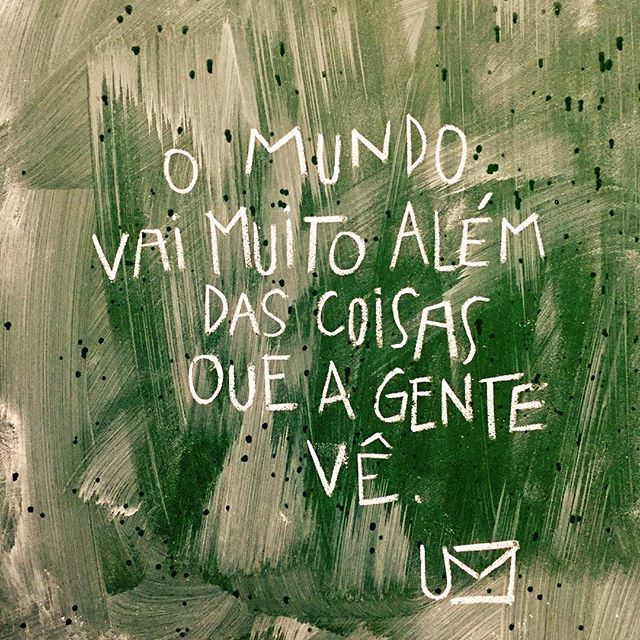 O MUNDO
VAI MUITO ALÉM
DAS COISAS
QUE A GENTE
VÊ.